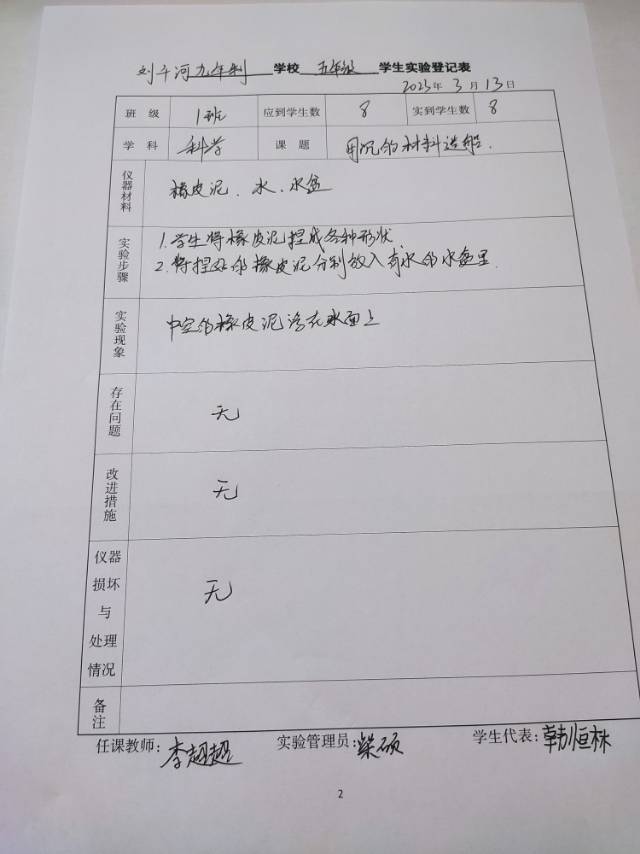 刘千河九年制 学校 五年级 学生实验登记表
2023年3月13日
班 级 1班 应到学生数 8 实到学生数 8
学 科 科学 课 题 用沉的材料造船.
仪器材料 橡皮泥、水、水盆
实验步骤 1.学生将橡皮泥捏成各种形状
2.将捏好的橡皮泥分别放入有水的水盆里.
实验现象 中空的橡皮泥浮在水面上
存在问题 无
改进措施 无
仪器损坏与处理情况 无
备注
任课教师: 李超超 实验管理员: 柴硕 学生代表: 韩恒株
2